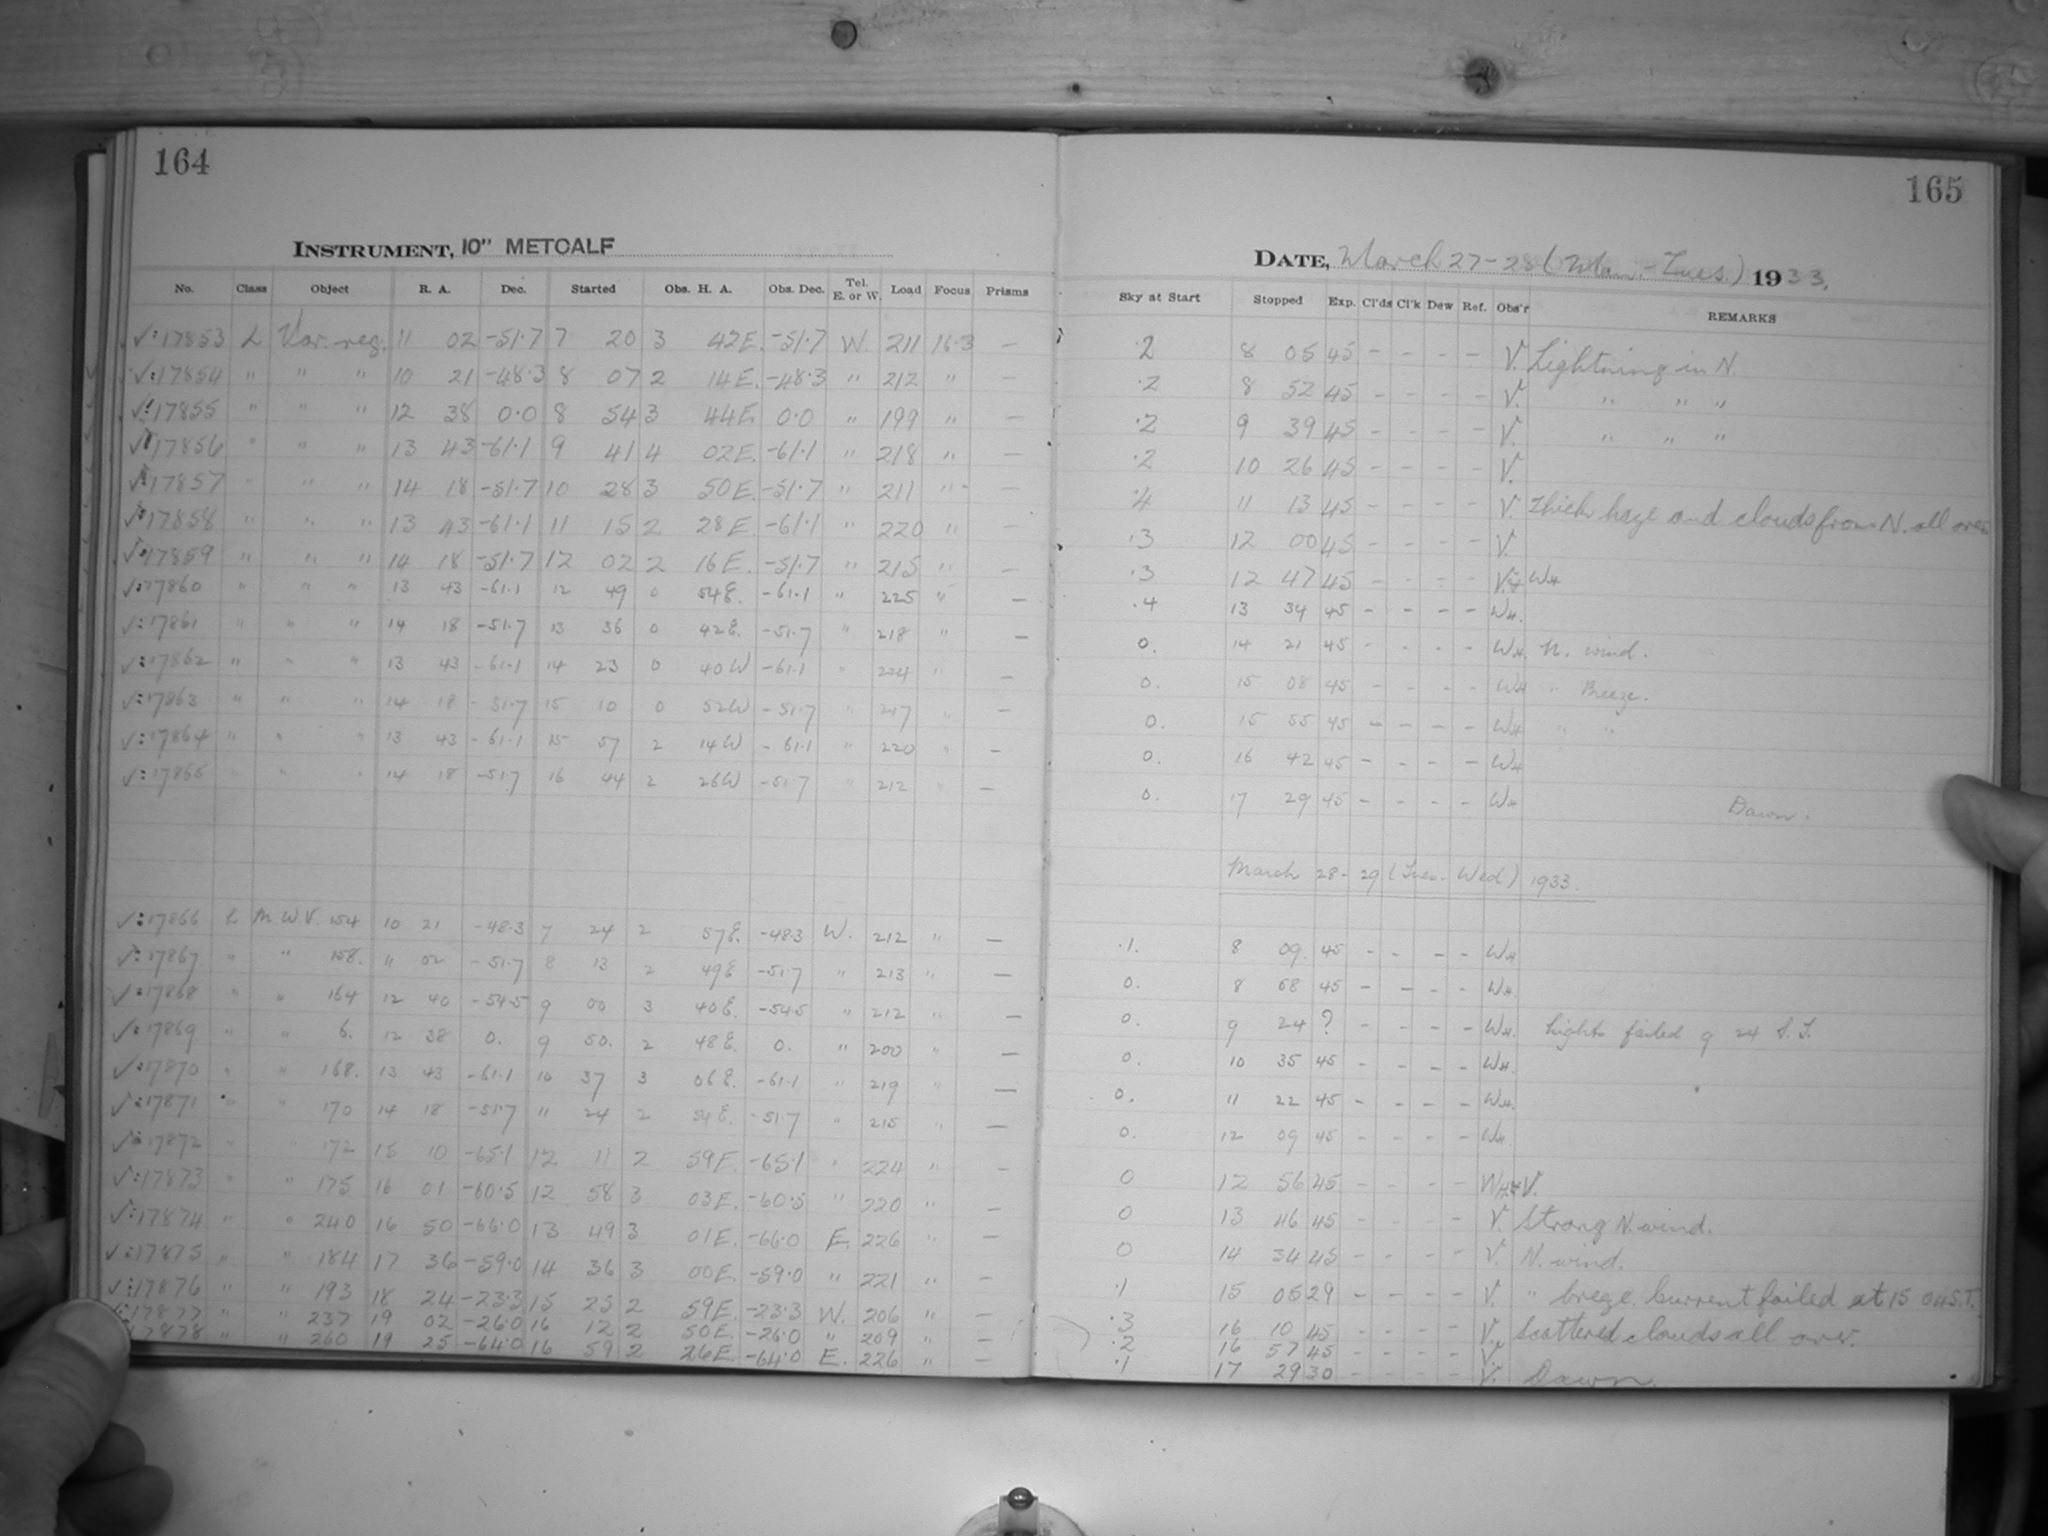 164
INSTRUMENT, 10" METCALF
No. Class Object R. A. Dec. Started Obs. H. A. Obs. Dec. Tel. E. or W. Load Focus Prisms
√:17853 L Var. reg. 11 02 -51.7 7 20 3 42E. -51.7 W. 211 16.3 —
√:17854 " " " 10 21 -48.3 8 07 2 14E. -48.3 " 212 " —
√:17855 " " " 12 38 0.0 8 54 3 44E 0.0 " 199 " —
17856 " " " 13 43 -61.1 9 41 4 02E. -61.1 " 218 " —
17857 " " " 14 18 -51.7 10 28 3 50E. -51.7 " 211 " —
17858 " " " 13 43 -61.1 11 15 2 28E. -61.1 " 220 " —
17859 " " " 14 18 -51.7 12 02 2 16E. -51.7 " 215 " —
√:17860 " " " 13 43 -61.1 12 49 0 54E. -61.1 " 225 " —
√:17861 " " " 14 18 -51.7 13 36 0 42E. -51.7 " 218 " —
√:17862 " " " 13 43 -61.1 14 23 0 40W -61.1 " 224 " —
√:17863 " " " 14 18 -51.7 15 10 0 52W -51.7 " 217 " —
√:17864 " " " 13 43 -61.1 15 57 2 14W -61.1 " 220 " —
√:17865 " " " 14 18 -51.7 16 44 2 26W -51.7 " 212 " —
√:17866 L M W V. 154 10 21 -48.3 7 24 2 57E. -48.3 W. 212 " —
√:17867 " " 158. " 02 -51.7 8 13 2 49E -51.7 " 213 " —
√:17868 " " 164 12 40 -54.5 9 00 3 40E. -54.5 " 212 " —
√:17869 " " 6. 12 38 0. 9 50. 2 48E. 0. " 200 " —
√:17870 " " 168. 13 43 -61.1 10 37 3 06E. -61.1 " 219 " —
√:17871 " " 170 14 18 -51.7 11 24 2 54E. -51.7 " 215 " —
√:17872 " " 172 15 10 -65.1 12 11 2 59E. -65.1 " 224 " —
√:17873 " " 175 16 01 -60.5 12 58 3 03E. -60.5 " 220 " —
√:17874 " " 240 16 50 -66.0 13 49 3 01E. -66.0 E. 226 " —
√:17875 " " 184 17 36 -59.0 14 36 3 00E. -59.0 " 221 " —
√:17876 " " 193 18 24 -23.3 15 25 2 59E -23.3 W. 206 " —
17877 " " 237 19 02 -26.0 16 12 2 50E. -26.0 " 209 " —
17878 " " 260 19 25 -64.0 16 59 2 26E. -64.0 E. 226 " —
165
DATE, March 27-28 (Mon.-Tues.) 1933.
Sky at Start Stopped Exp. Cl'ds Cl'k Dew Ref. Obs'r REMARKS
.2 8 05 45 - - - - V. Lightning in N.
.2 8 52 45 - - - - V. " " "
.2 9 39 45 - - - - V. " " "
.2 10 26 45 - - - - V.
.4 11 13 45 - - - - V. Thick haze and clouds from N. all over
.3 12 00 45 - - - - V.
.3 12 47 45 - - - - V.+ WH
.4 13 34 45 - - - - WH.
0. 14 21 45 - - - - WH. N. wind.
0. 15 08 45 - - - - WH " Breeze.
0. 15 55 45 - - - - WH " "
0. 16 42 45 - - - - WH
0. 17 29 45 - - - - WH Dawn.
March 28-29 (Tues. Wed) 1933.
.1. 8 09. 45 - - - - WH
0. 8 58 45 - - - - WH.
0. 9 24 ? - - - - WH. Lights failed 9 24 S.T.
0. 10 35 45 - - - - WH.
0. 11 22 45 - - - - WH.
0. 12 09 45 - - - - WH.
0 12 56 45 - - - - WH.+V.
0 13 46 45 - - - - V. Strong N. wind.
0 14 34 45 - - - - V. N. wind.
.1 15 05 29 - - - - V. " breeze. Current failed at 15 04 S.T.
.3 16 10 45 - - - - V. Scattered clouds all over.
.2 16 57 45 - - - - V.
.1 17 29 30 - - - - V. Dawn.